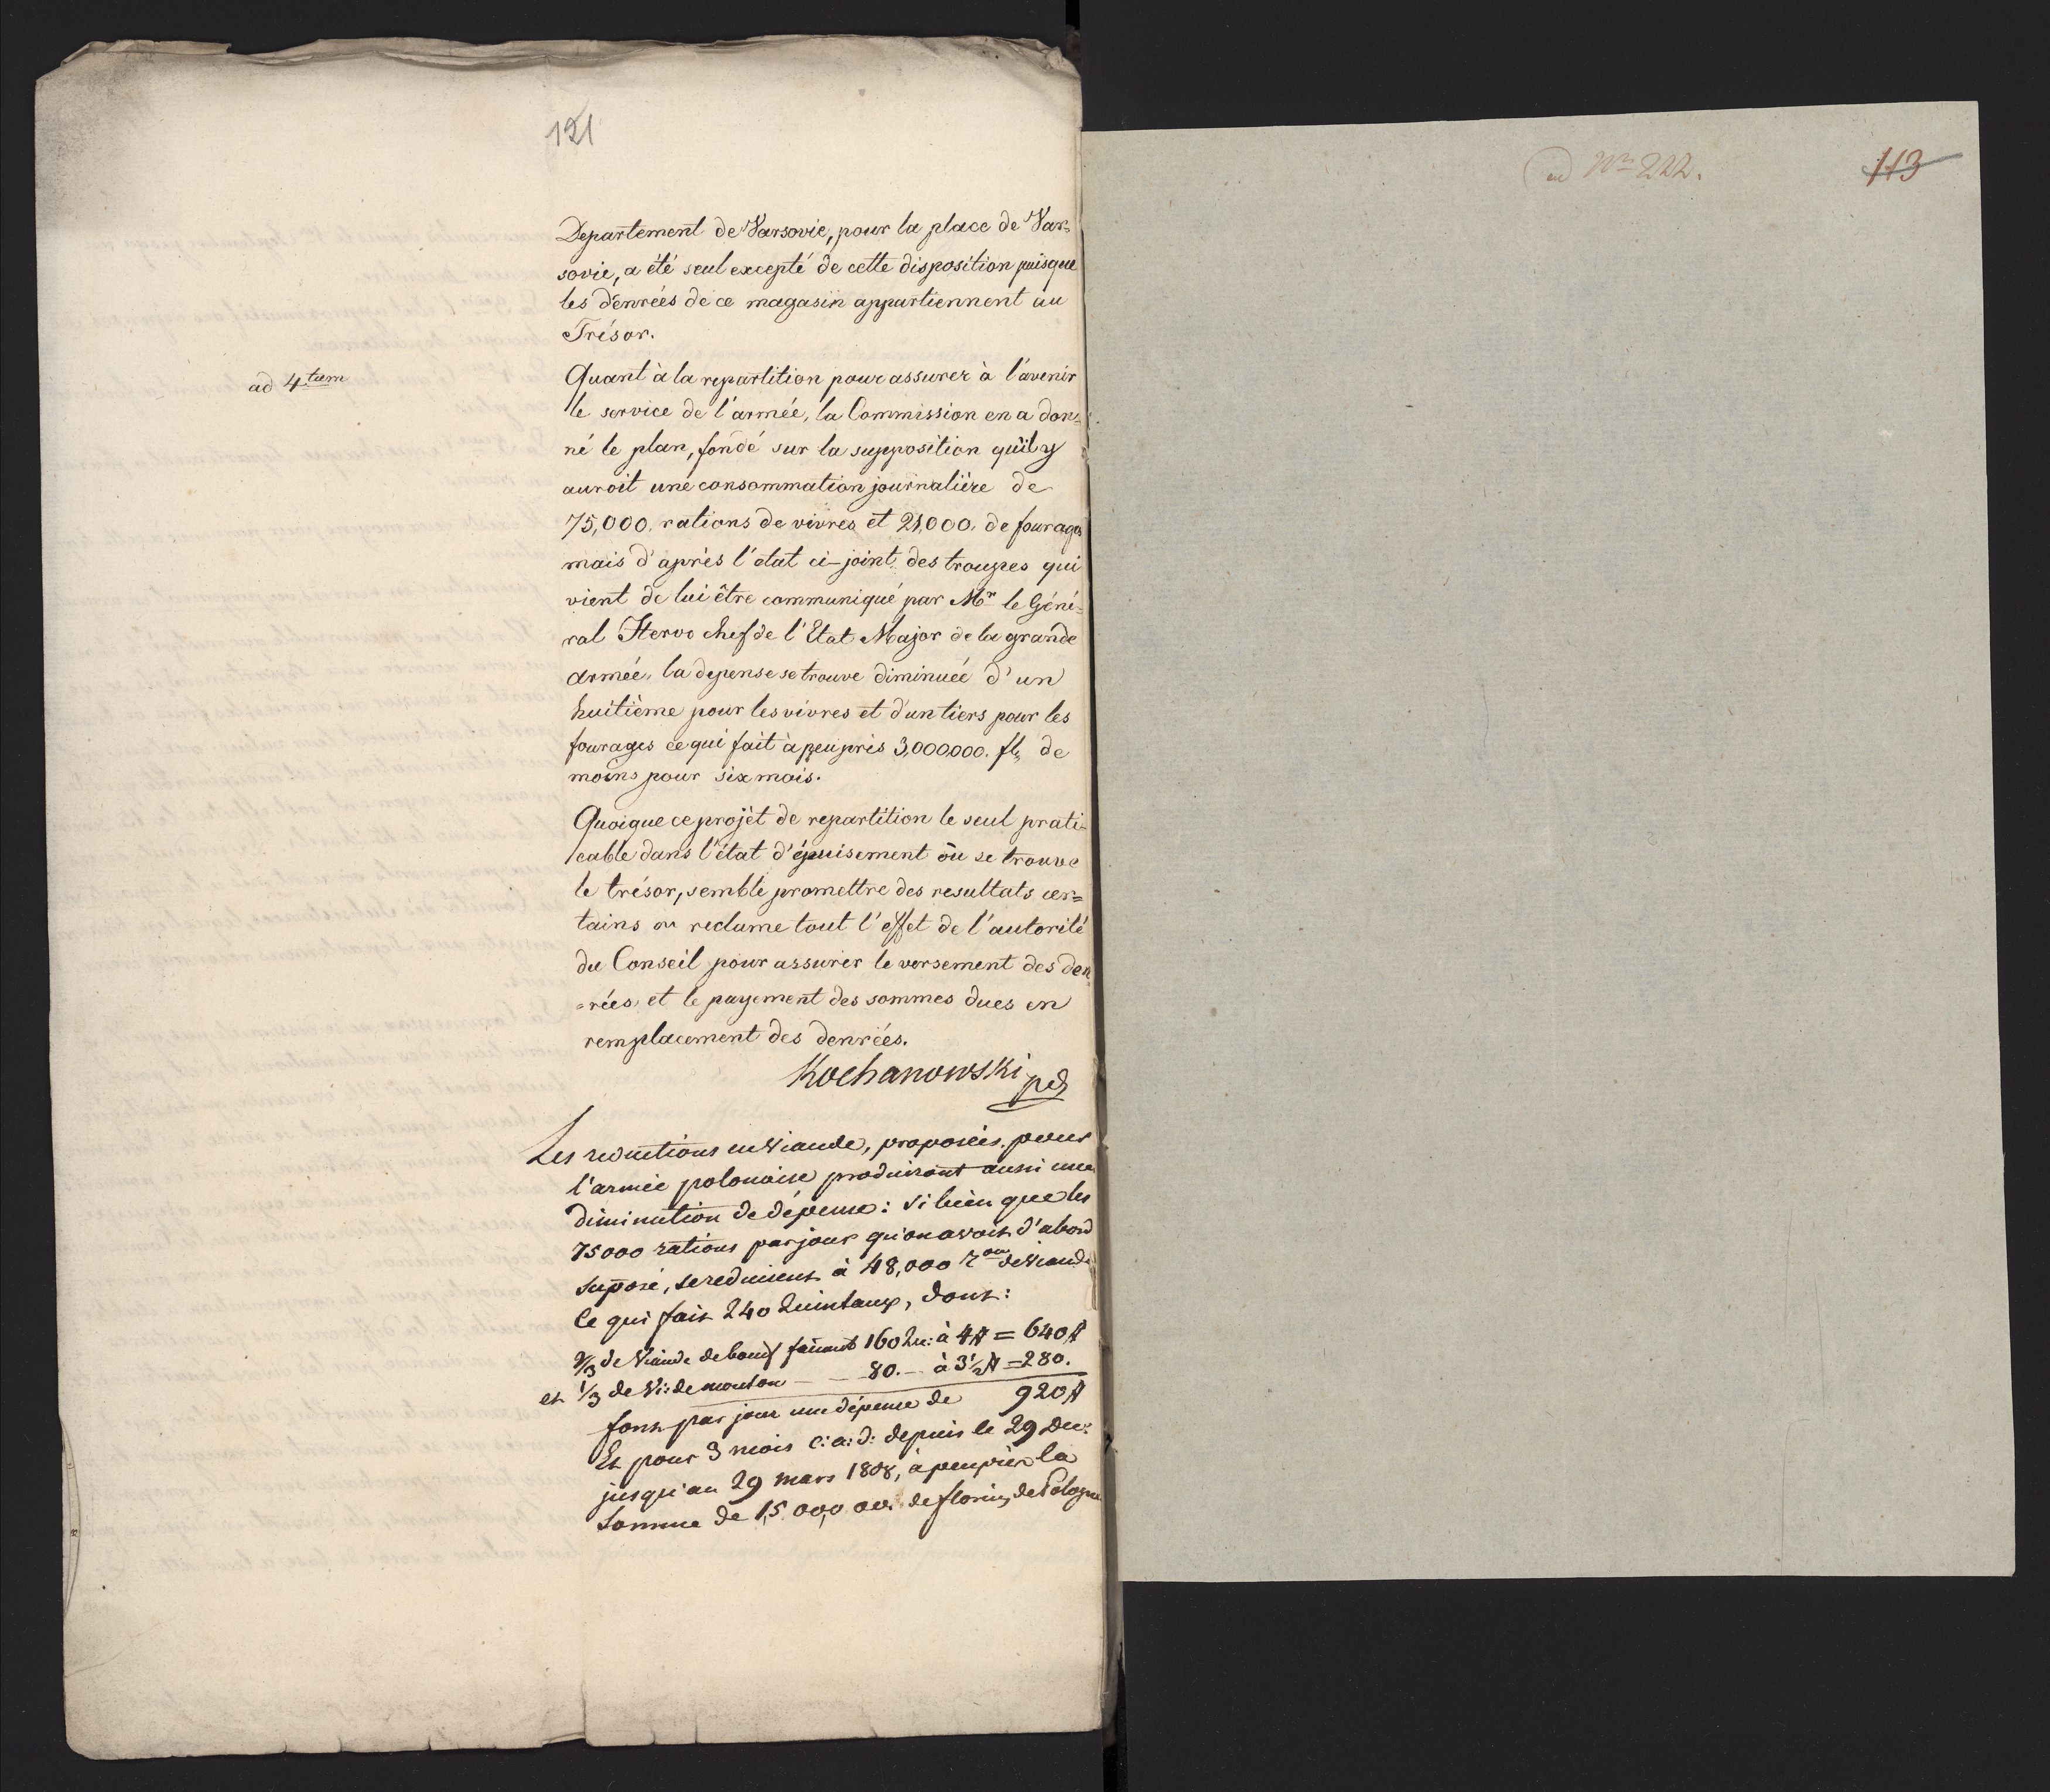 121
Departement de Varsovie, pour la place de Var=
sovie, a été seul excepté de cette disposition puisque
les denrées de ce magasin appartiennent au
Trésor.
ad 4tum
Quant à la repartition pour assurer à l'avenir
le service de l'armée, la Commission en a don=
né le plan, fondé sur la supposition qu'il y
auroit une consommation journalière de
75,000. rations de vivres et 21,000. de fourages
mais d'après l'état ci-joint des troupes qui
vient de lui être communiqué par Mr le Géné=
ral Hervo chef de l'Etat Major de la grande
armée, la depense se trouve diminuée d'un
huitième pour les vivres et d'un tiers pour les
fourages ce qui fait à peu près 3,000,000. fl. de
moins pour six mois.
Quoique ce projèt de repartition le seul prati-
cable dans l'état d'épuisement où se trouve
le trésor, semble promettre des resultats cer=
tains on reclame tout l'effet de l'autorité
du Conseil pour assurer le versement des den
=rées et le payement des sommes dues en
remplacement des denrées.
Kochanowski
Les reductions en Viande, proposées pour
l'armée polonaise produiront aussi une
diminution de dépense: si bien que les
75000 rations par jour qu'on avoit d'abord
supposé, se reduisent à 48,000 rons de Viande
ce qui fait 240 Quintaux, dont:
2/3 de Viande de boeuf faisant 160 Qu: à 4 # = 640 #
et 1/3 de Vi: de mouton — — 80. — à 3 1/2 # = 280.
font par jour une dépense de 920 #
Et pour 3 mois c:a:d: depuis le 29 Dec:
jusqu'au 29 mars 1808, à peu près la
Somme de 1,500,000. de florins de Pologne
ad Nm 222.
113